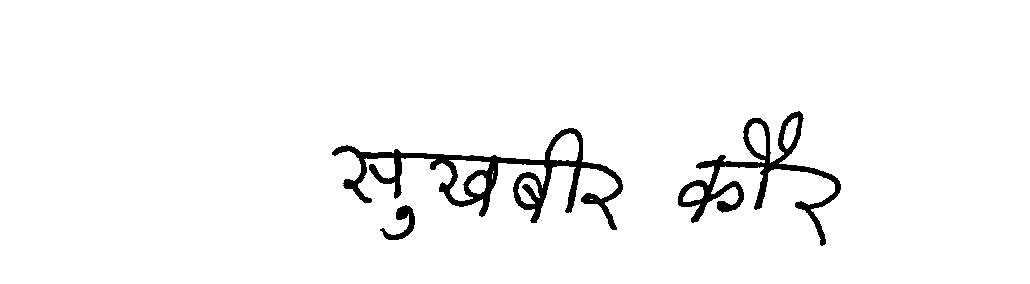 सुखबीर कौर